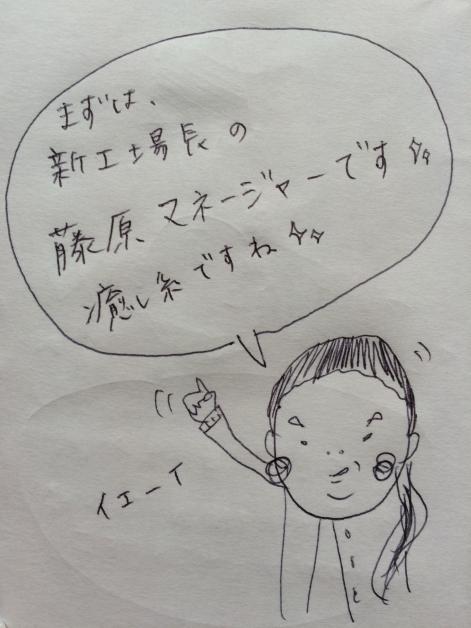 まずは、
新工場長の
藤原マネージャーです✨
癒し系ですね✨
イエーイ